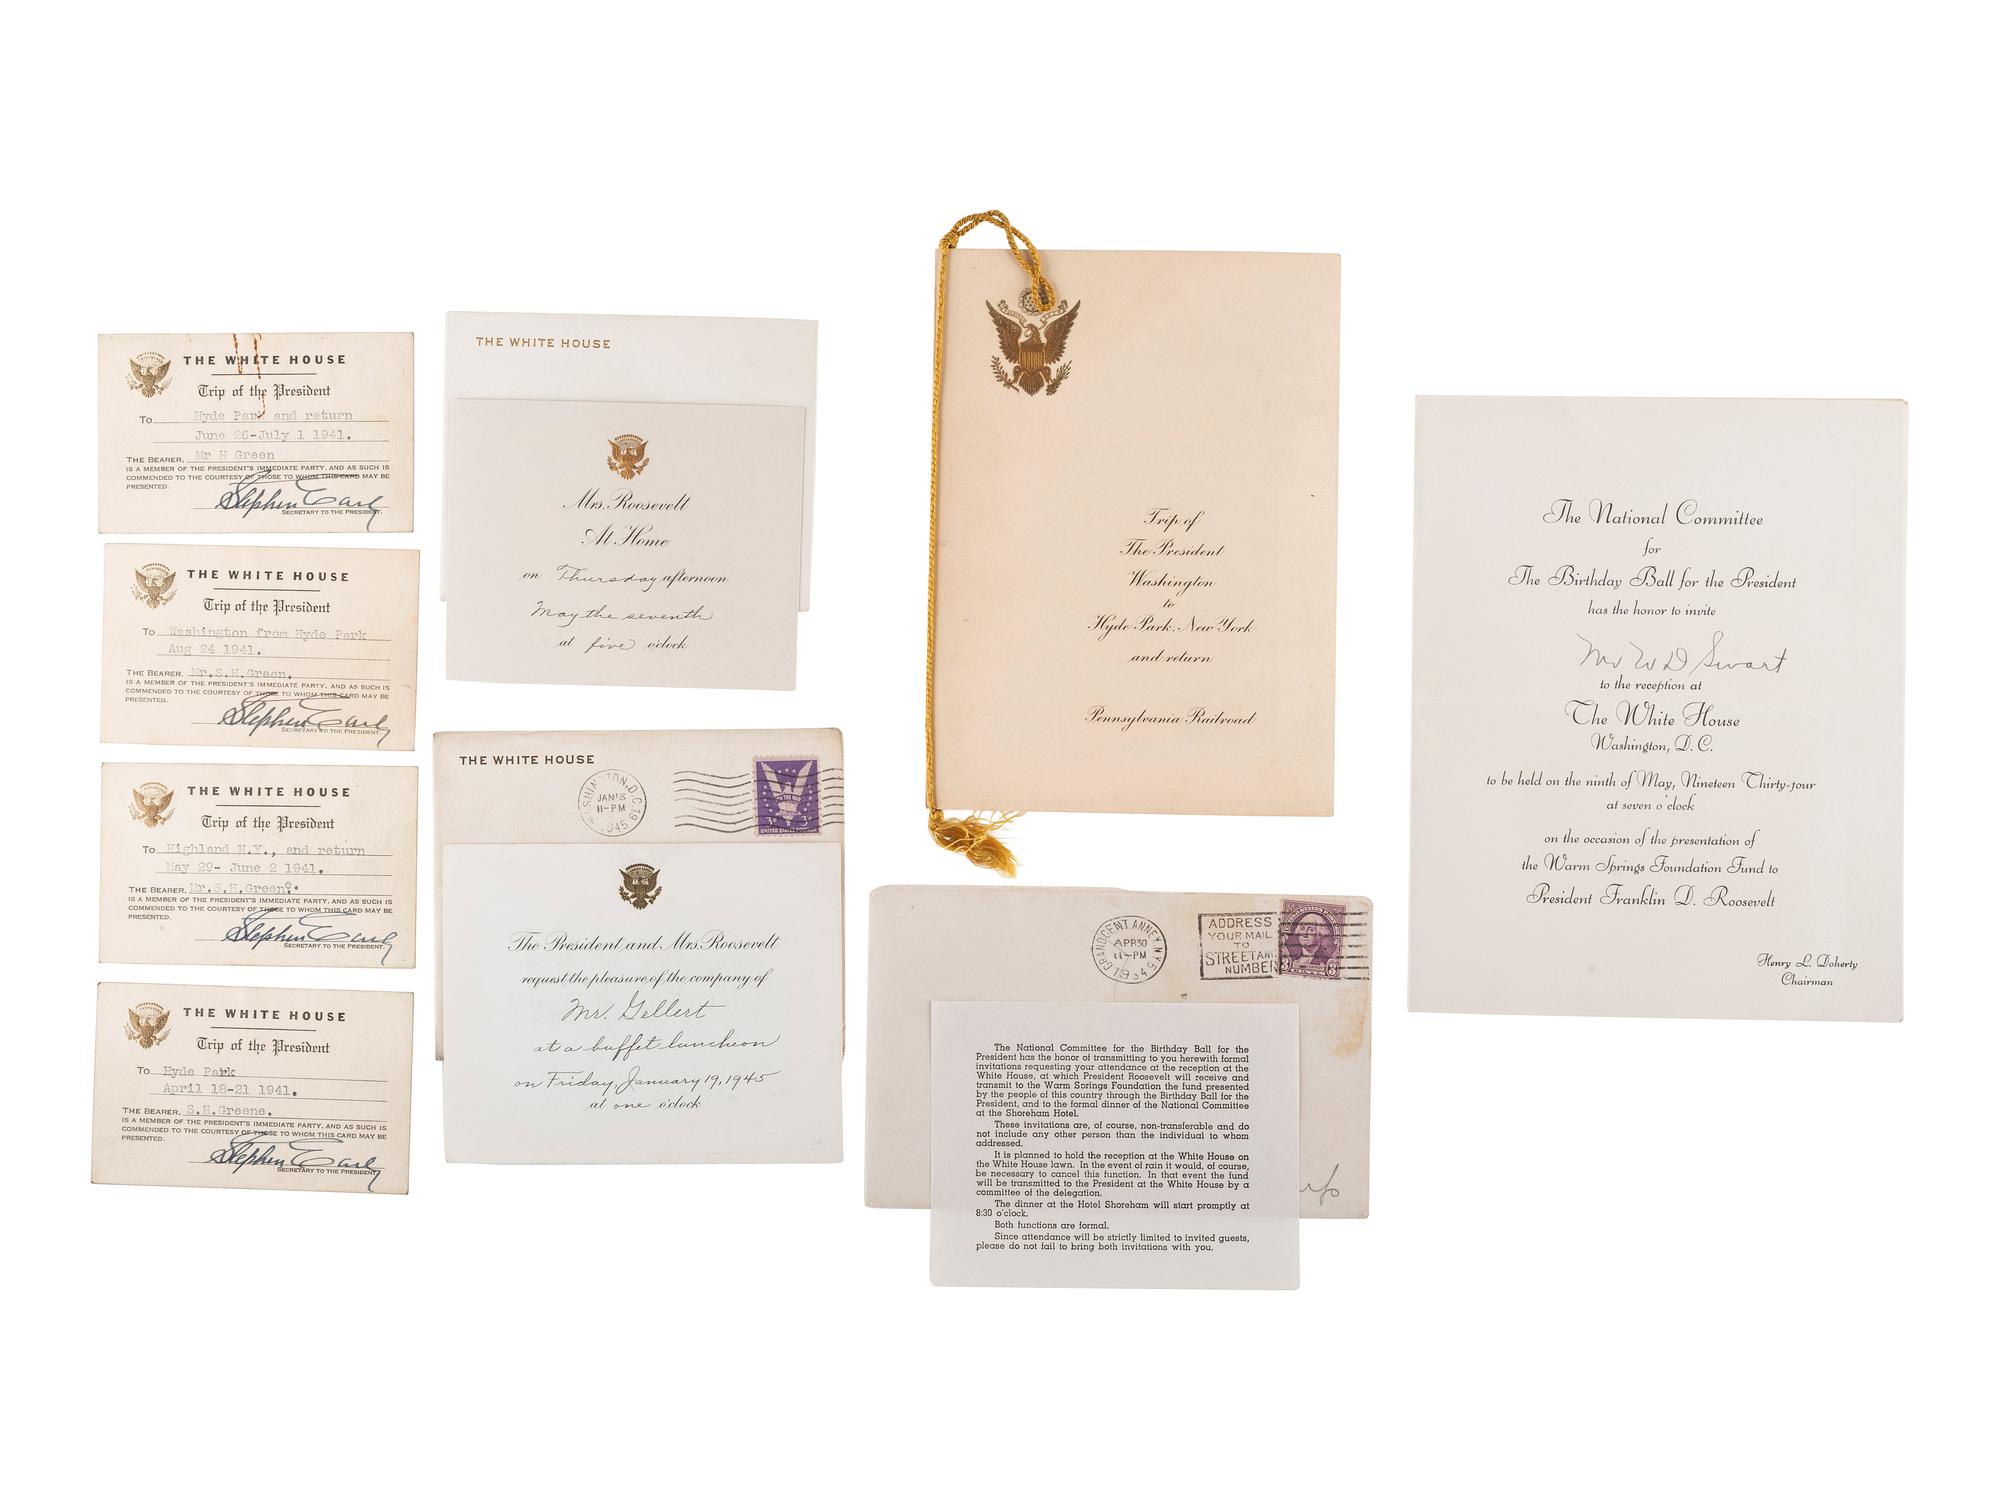 THE WHITE HOUSE
Trip of the President
To Hyde Park and return
June 26-July 1 1941.
THE BEARER, Mr H Green
IS A MEMBER OF THE PRESIDENT'S IMMEDIATE PARTY, AND AS SUCH IS
COMMENDED TO THE COURTESY OF THOSE TO WHOM THIS CARD MAY BE
PRESENTED.
Stephen Early
SECRETARY TO THE PRESIDENT.
THE WHITE HOUSE
Trip of the President
To Washington from Hyde Park
Aug 24 1941.
THE BEARER, Mr.S.H.Green.
IS A MEMBER OF THE PRESIDENT'S IMMEDIATE PARTY, AND AS SUCH IS
COMMENDED TO THE COURTESY OF THOSE TO WHOM THIS CARD MAY BE
PRESENTED.
Stephen Early
SECRETARY TO THE PRESIDENT.
THE WHITE HOUSE
Trip of the President
To Highland N.Y., and return
May 29- June 2 1941.
THE BEARER, Mr.S.H.Greene.
IS A MEMBER OF THE PRESIDENT'S IMMEDIATE PARTY, AND AS SUCH IS
COMMENDED TO THE COURTESY OF THOSE TO WHOM THIS CARD MAY BE
PRESENTED.
Stephen Early
SECRETARY TO THE PRESIDENT.
THE WHITE HOUSE
Trip of the President
To Hyde Park
April 18-21 1941.
THE BEARER, S.H.Greene.
IS A MEMBER OF THE PRESIDENT'S IMMEDIATE PARTY, AND AS SUCH IS
COMMENDED TO THE COURTESY OF THOSE TO WHOM THIS CARD MAY BE
PRESENTED.
Stephen Early
SECRETARY TO THE PRESIDENT.
THE WHITE HOUSE
Mrs. Roosevelt
At Home
on Thursday afternoon
May the seventh
at five o'clock
THE WHITE HOUSE
WASHINGTON, D.C. 19
JAN 15
11-PM
1945
WIN THE WAR
3¢ 3¢
UNITED STATES POSTAGE
The President and Mrs. Roosevelt
request the pleasure of the company of
Mr. Gellert
at a buffet luncheon
on Friday, January 19, 1945
at one o'clock
Trip of
The President
Washington
to
Hyde Park, New York
and return
Pennsylvania Railroad
GRAND CENT. ANNEX. N.Y. 5
APR 30
11-PM
1934
ADDRESS
YOUR MAIL
TO
STREET AND
NUMBER
3 3
The National Committee for the Birthday Ball for the
President has the honor of transmitting to you herewith formal
invitations requesting your attendance at the reception at the
White House, at which President Roosevelt will receive and
transmit to the Warm Springs Foundation the fund presented
by the people of this country through the Birthday Ball for the
President, and to the formal dinner of the National Committee
at the Shoreham Hotel.
These invitations are, of course, non-transferable and do
not include any other person than the individual to whom
addressed.
It is planned to hold the reception at the White House on
the White House lawn. In the event of rain it would, of course,
be necessary to cancel this function. In that event the fund
will be transmitted to the President at the White House by a
committee of the delegation.
The dinner at the Hotel Shoreham will start promptly at
8:30 o'clock.
Both functions are formal.
Since attendance will be strictly limited to invited guests,
please do not fail to bring both invitations with you.
The National Committee
for
The Birthday Ball for the President
has the honor to invite
Mr W D Swart
to the reception at
The White House
Washington, D. C.
to be held on the ninth of May, Nineteen Thirty-four
at seven o'clock
on the occasion of the presentation of
the Warm Springs Foundation Fund to
President Franklin D. Roosevelt
Henry L. Doherty
Chairman